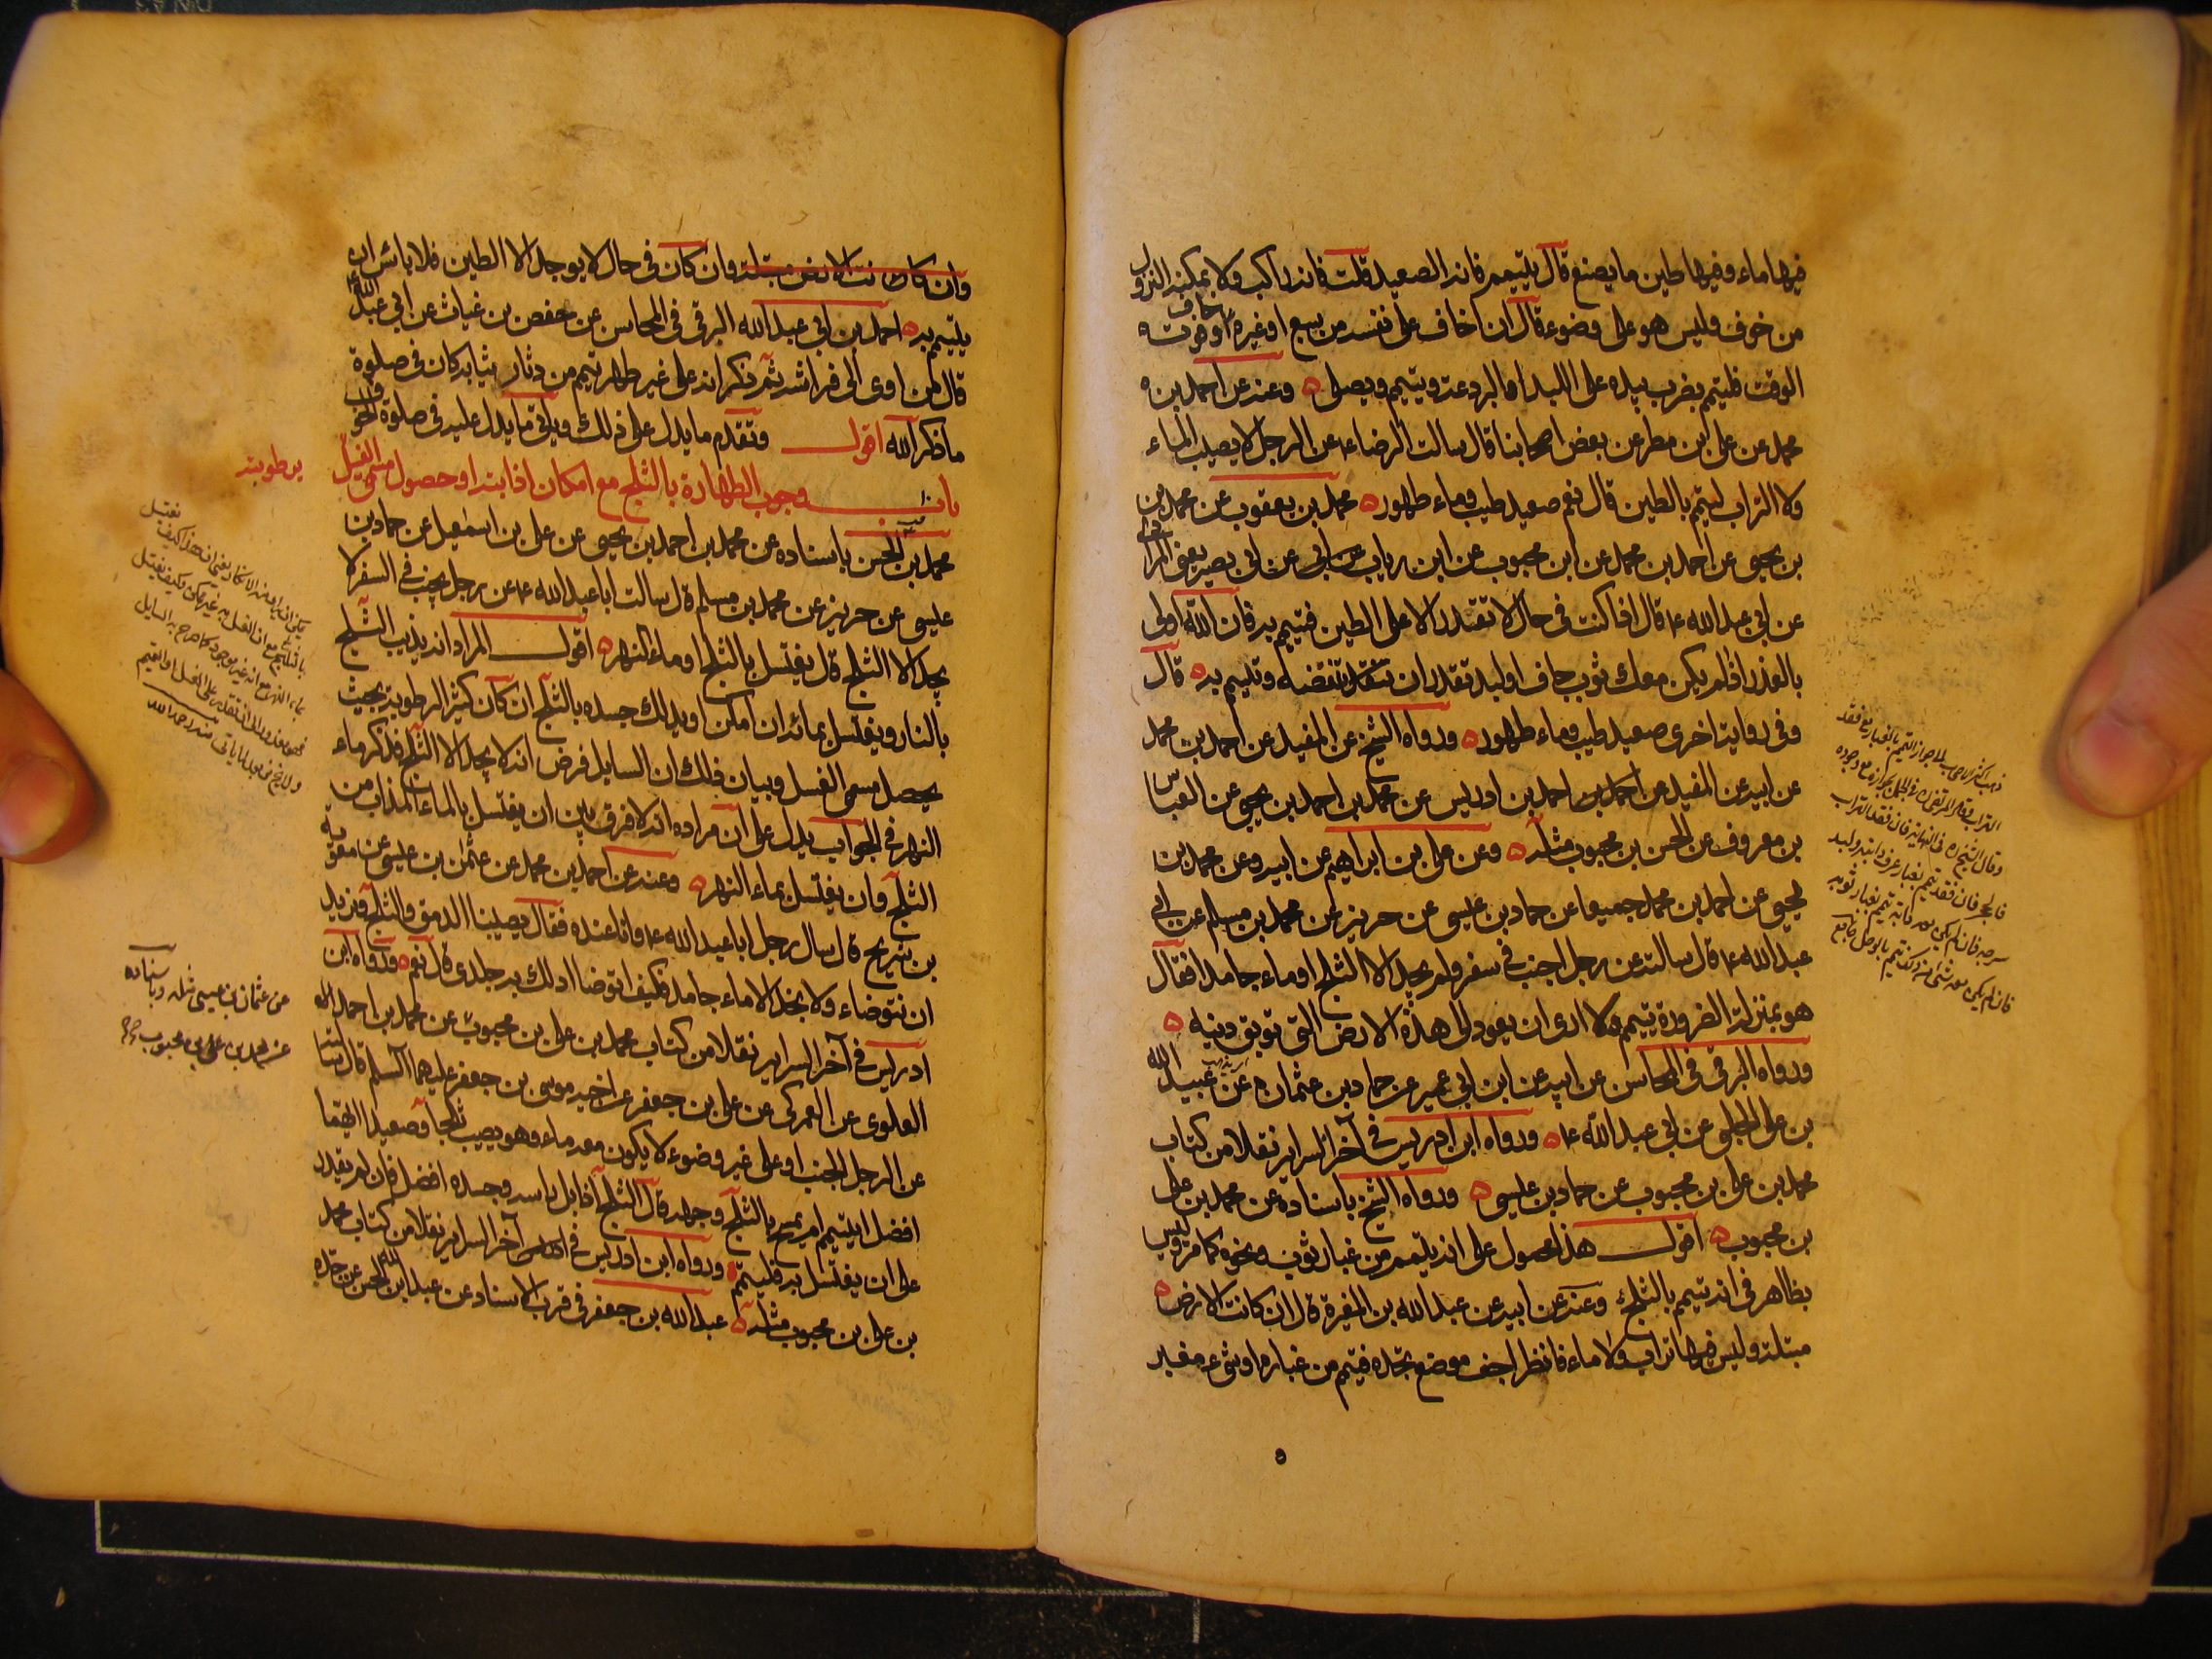 فيها ماء وفيها طين ما يصنع قال يتيمم فانه الصعيد قلت فانه راكب ولا يمكنه النزول
من خوف وليس هو على وضوء قال ان خاف على نفسه من سبع او غيره وخاف فوت
الوقت فليتيمم يضرب بيده على اللبد او البردعة ويتيمم ويصلى وعنه عن احمد بن
محمد عن على بن مطر عن بعض اصحابنا قال سالت الرضا ع عن الرجل لا يصيب الماء
ولا التراب ايتيمم بالطين قال نعم صعيد طيب وماء طهور محمد بن يعقوب عن محمد بن
بن يحيى عن احمد بن محمد عن ابن محبوب عن ابن رياب عن ابى بصير يعنى المرادى
عن ابى عبد الله ع قال اذا كنت فى حال لا تقدر الا على الطين فتيمم به فان الله اولى
بالعذر اذا لم يكن معك ثوب جاف او لبد تقدر ان تنفضه وتتيمم به قال
وفى رواية اخرى صعيد طيب وماء طهور ورواه الشيخ عن المفيد عن احمد بن محمد
عن ابيه عن المفيد عن احمد بن احمد بن ادريس عن محمد بن احمد بن يحيى عن العباس
بن معروف عن الحسن بن محبوب مثله وعن على بن ابراهيم عن ابيه وعن محمد بن
يحيى عن احمد بن محمد جميعا عن حماد بن عيسى عن حريز عن محمد بن مسلم عن ابى
عبد الله ع قال سالته عن رجل اجنب فى سفر ولم يجد الا الثلج او ماء جامدا فقال
هو بمنزلة الضرورة يتيمم ولا ارى ان يعود الى هذه الارض التى توبق دينه
ورواه البرقى فى المحاسن عن ابيه عن ابن ابى عمير عن حماد بن عثمان عن عبيد الله
بن على الحلبى عن ابى عبد الله ع ورواه ابن ادريس فى آخر السراير نقلا من كتاب
محمد بن على بن محبوب عن حماد بن عيسى ورواه الشيخ باسناده عن محمد بن على
بن محبوب اقول هذا محمول على انه يتيمم من غبار ثوب ونحوه كما مر وليس
بظاهر فى انه يتيمم بالثلج وعنه عن ابيه عن عبد الله بن المغيرة قال ان كانت الارض
مبتلة وليس فيها تراب ولا ماء فانظر اجف موضع تجده فتيمم من غباره او شىء مغبر
ذهب اكثر الاصحاب الى جواز التيمم بالغبار مع فقد
التراب
وقال الشيخ ره فى النهاية فان فقد التراب
فالحجر فان فقد تيمم بغبار عرف دابته او لبد
سرجه فان لم يكن معه دابة تيمم بغبار ثوبه
فان لم يكن معه شىء من ذلك تيمم بالوحل
وان كانت الارض مبتلة وان كان فى حال لا يوجد الا الطين فلا بأس ان
يتيمم به احمد بن ابى عبد الله البرقى فى المحاسن عن حفص بن غياث عن ابى عبد الله
قال من اوى الى فراشه ثم ذكر انه على غير طهر تيمم من دثار ثيابه كان فى صلوة
ما ذكر الله اقول وتقدم ما يدل على ذلك وياتى ما يدل عليه فى صلوة الخوف
باب وجوب الطهارة بالثلج مع امكان اذابته او حصول مسمى الغسل
برطوبته
محمد بن الحسن باسناده عن محمد بن احمد بن يحيى عن على بن اسمعيل عن حماد بن
عيسى عن حريز عن محمد بن مسلم قال سالت ابا عبد الله ع عن رجل يجنب فى السفر لا
يجد الا الثلج قال يغتسل بالثلج او ماء النهر اقول المراد انه يذيب الثلج
بالنار ويغتسل بمائه ان امكن او يدلك جسده بالثلج ان كان كثير الرطوبة بحيث
يحصل مسمى الغسل وبيان ذلك ان السايل فرض انه لا يجد الا الثلج فذكر ماء
النهر فى الجواب يدل على ان مراده انه لا فرق بين ان يغتسل بالماء المذاب من
الثلج وان يغتسل بماء النهر وعنه عن احمد بن محمد عن عثمن بن عيسى عن معوية
بن شريح قال سال رجل ابا عبد الله ع وانا عنده فقال يصيبنا الدمق والثلج ونريد
ان نتوضاء ولا نجد الا ماء جامدا فكيف اتوضا ادلك به جلدى قال نعم ورواه ابن
ادريس فى آخر السراير نقلا من كتاب محمد بن على بن محبوب عن محمد بن احمد
العلوى عن العمركى عن على بن جعفر عن اخيه موسى بن جعفر عليهما السلم قال سالته
عن الرجل الجنب او على غير وضوء لا يكون معه ماء وهو يصيب ثلجا وصعيدا ايهما
افضل ايتيمم ام يمسح بالثلج وجهه قال الثلج اذا بل راسه وجسده افضل فان لم يقدر
على ان يغتسل به فليتيمم ورواه ابن ادريس فى آخر السراير نقلا من كتاب محمد
بن على بن محبوب مثله عبد الله بن جعفر فى قرب الاسناد عن عبد الله بن الحسن عن جده
عن عثمان بن عيسى مثله وباسناده
عن محمد بن على بن محبوب